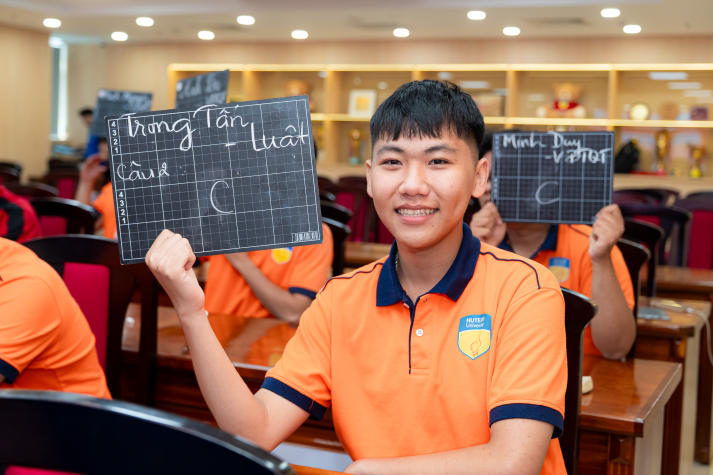 Trọng Tấn
- Luật
Câu 2
C
Minh Duy
- VPTQT
C
HUTECH
University